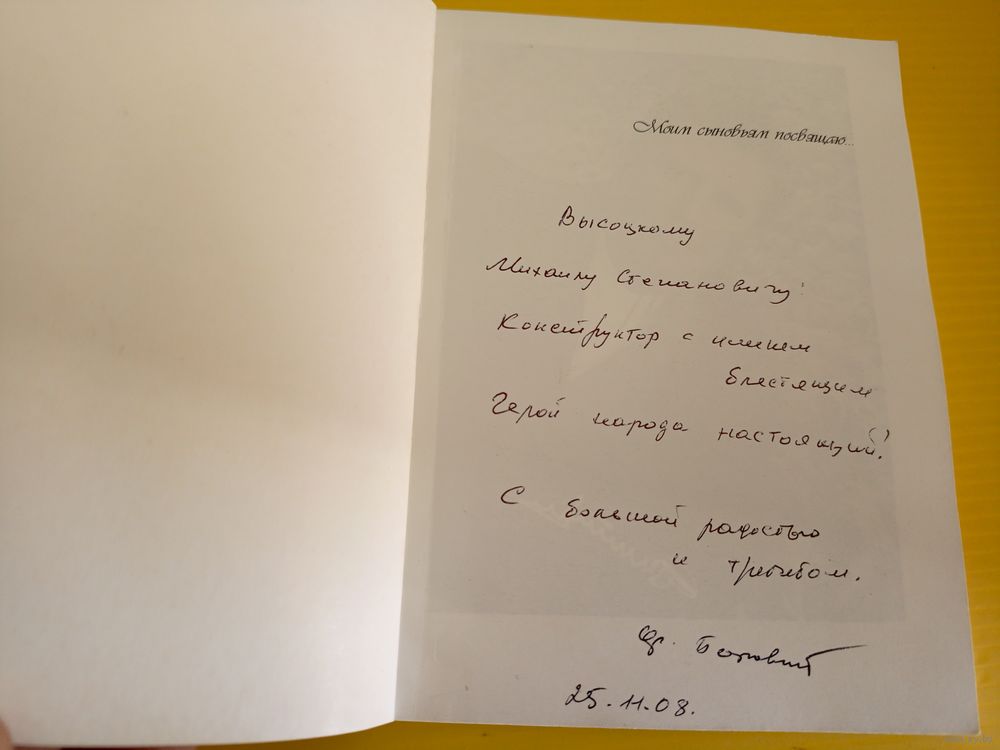 Моим сыновьям посвящаю...
Высоцкому
Михаилу Степановичу!
Конструктор с
блестящим
Герой народа настоящий!
С большой радостью
и
25.11.08.